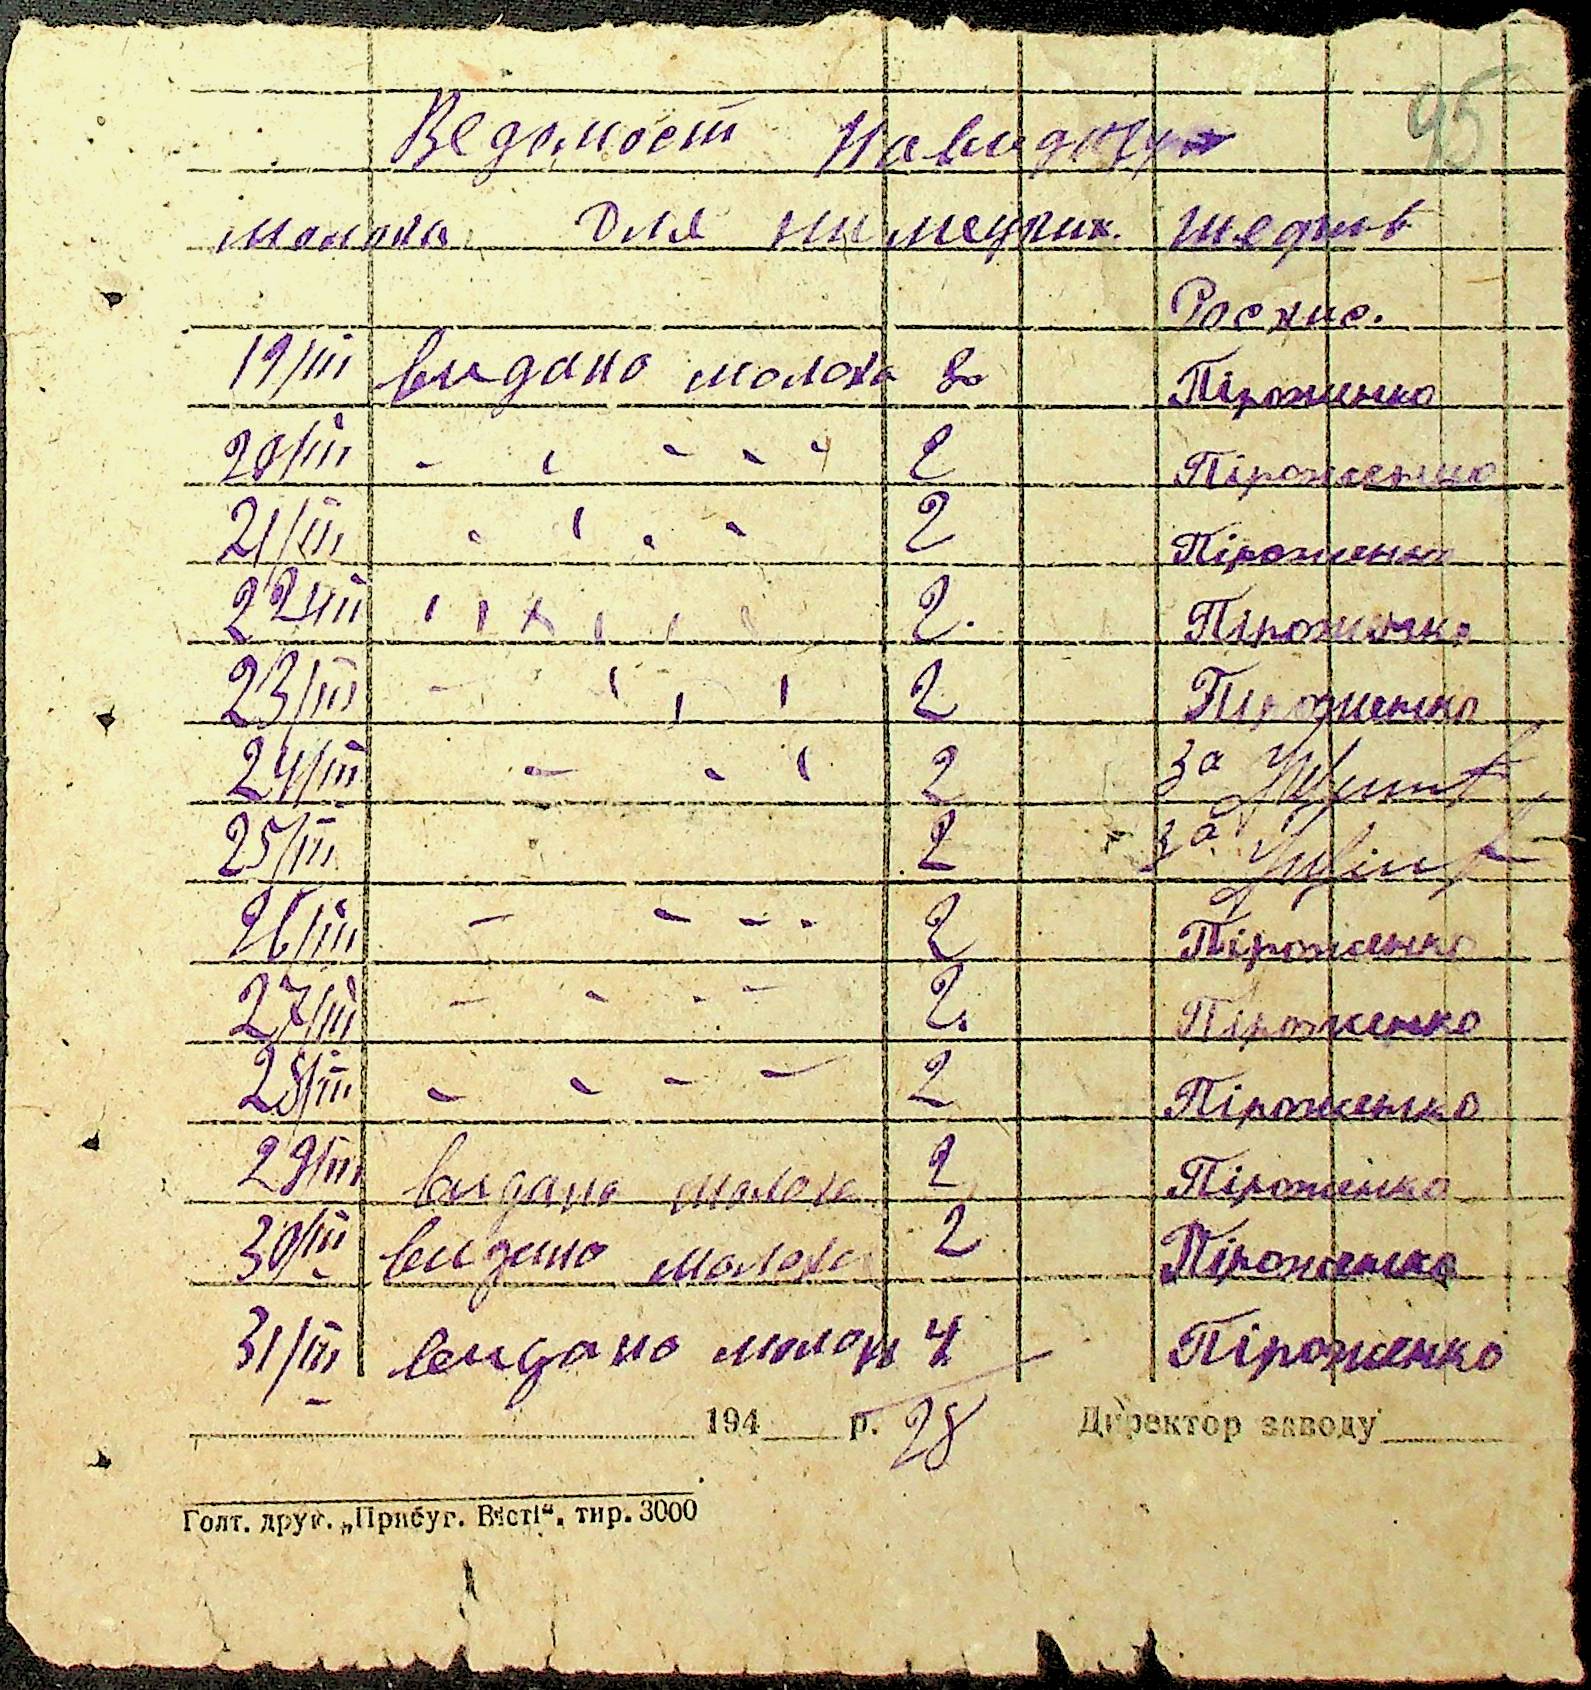 95
Ведомост на видачу
молока для нимецких шефив
Роспис.
19/III видано молока 2. Піроженко
20/III - ‘ - - - 2 Піроженко
21/III - ‘ - - 2 Піроженко
22/III 2. Піроженко
23/III - ‘ ‘ ‘ 2 Піроженко
24/III - - ‘ 2 за
25/III 2 за
26/III - - - - 2 Піроженко
27/III - - - - 2. Піроженко
28/III - - - - 2 Піроженко
29/III видано молока 2 Піроженко
30/III видано молока 2 Піроженко
31/III видано молок 4 Піроженко
194 р. 28 Директор заводу
Голт. друк. „Прибуг. Вісті“. тир. 3000